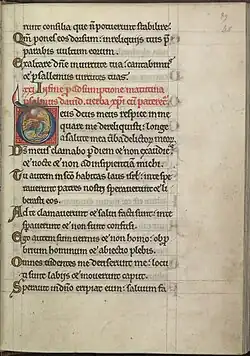 runt consilia que n̄ potuerunt stabilire.
Qm̄ pones eos dorsum: in reliquiis tuis p̄
parabis vultum eorum.
Exaltare dn̄e in virtute tua: cantabim᷒
et psallemus virtutes tuas.
xxi In fine p̄ susumptione matutina
psalmus david. verba xp̄i cū pateret᷑.
Deus deus meus respice in me
quare me dereliquisti: longe
a salute mea ūba delictoꝝ meoꝝ.
Ds meus clamabo p̄ diem et non exaudies:
et nocte et non ad insipientiam michi.
Tu autem in sc̄o habitas laus isrl̄: in te spe
raverunt patres nostri speraverunt et li
berasti eos.
Ad te clamaverunt et salvi facti sunt: in te
speraverunt et non sunt confusi.
Ego autem sum vermis et non homo: obp̄
brium hominum et abiectio plebis.
Omnes videntes me deriserunt me: locu
ti sunt labiis et moverunt caput.
Speravit in dn̄o eripiat eum: salvum fa